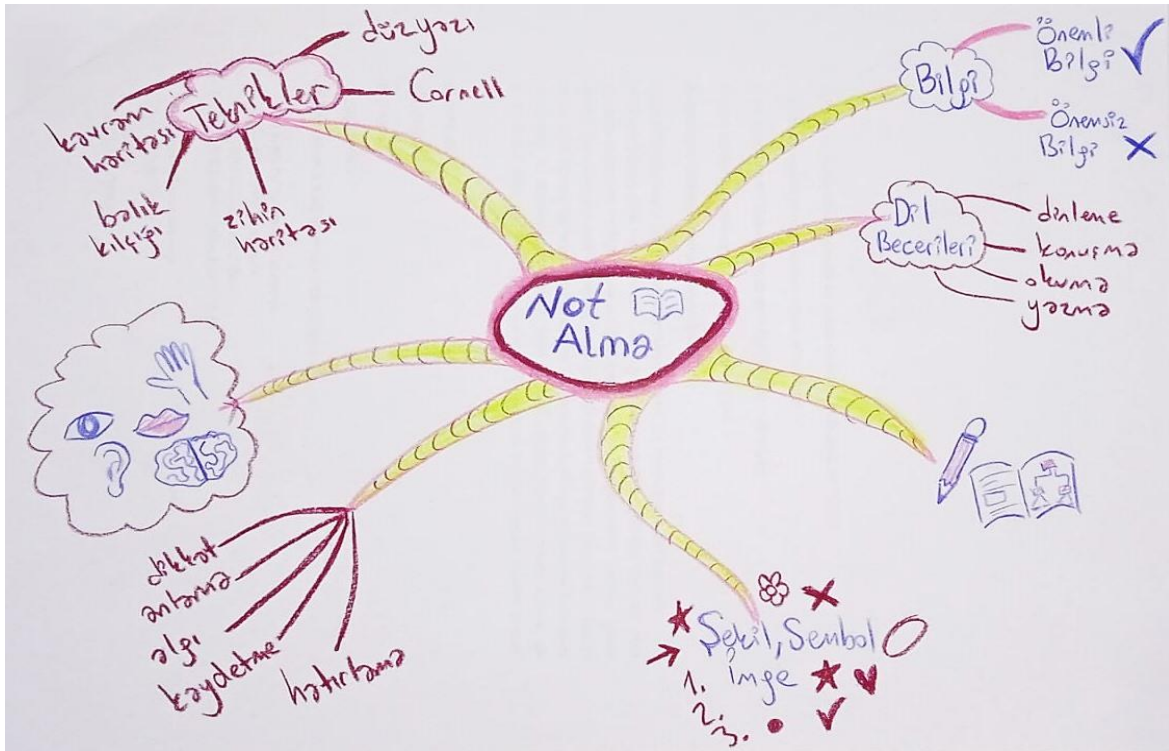 Not
Alma
Teknikler
düzyazı
Cornell
kavram
haritası
balık
kılçığı
zihin
haritası
Bilgi
Önemli
Bilgi
Önemsiz
Bilgi
Dil
Becerileri
dinleme
konuşma
okuma
yazma
dikkat
anlama
algı
kaydetme
hatırlama
Şekil, Sembol
İmge
1.
2.
3.